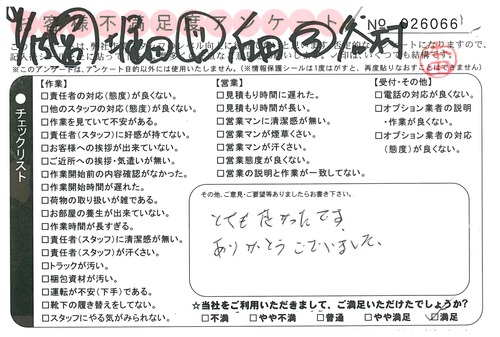 お客様不満足度アンケート
No 026066
※このアンケートは、アンケート目的以外には使用いたしません。(※情報保護シールは1度はがすと、再度貼りなおすことはできません)
チェックリスト
【作業】
□責任者の対応(態度)が良くない。
□他のスタッフの対応(態度)が良くない。
□作業を見ていて不安がある。
□責任者(スタッフ)に好感が持てない。
□お客様への挨拶が出来ていない。
□ご近所への挨拶・気遣いが無い。
□作業開始前の内容確認がなかった。
□作業開始時間が遅れた。
□荷物の取り扱いが雑である。
□お部屋の養生が出来ていない。
□作業時間が長すぎる。
□責任者(スタッフ)に清潔感が無い。
□責任者(スタッフ)が汗くさい。
□トラックが汚い。
□梱包資材が汚い。
□運転が不安(下手)である。
□靴下の履き替えをしてない。
□スタッフにやる気がみられない。
【営業】
□見積もり時間に遅れた。
□見積もり時間が長い。
□営業マンに清潔感が無い。
□営業マンが煙草くさい。
□営業マンが汗くさい。
□営業態度が良くない。
□営業の説明と作業が一致してない。
【受付・その他】
□電話の対応が良くない。
□オプション業者の説明
・作業が良くない。
□オプション業者の対応
(態度)が良くない。
その他、ご意見・ご要望等ありましたらお書き下さい。
とても良かったです。
ありがとうございました。
☆当社をご利用いただきまして、ご満足いただけたでしょうか?
□不満 □やや不満 □普通 □やや満足 □満足